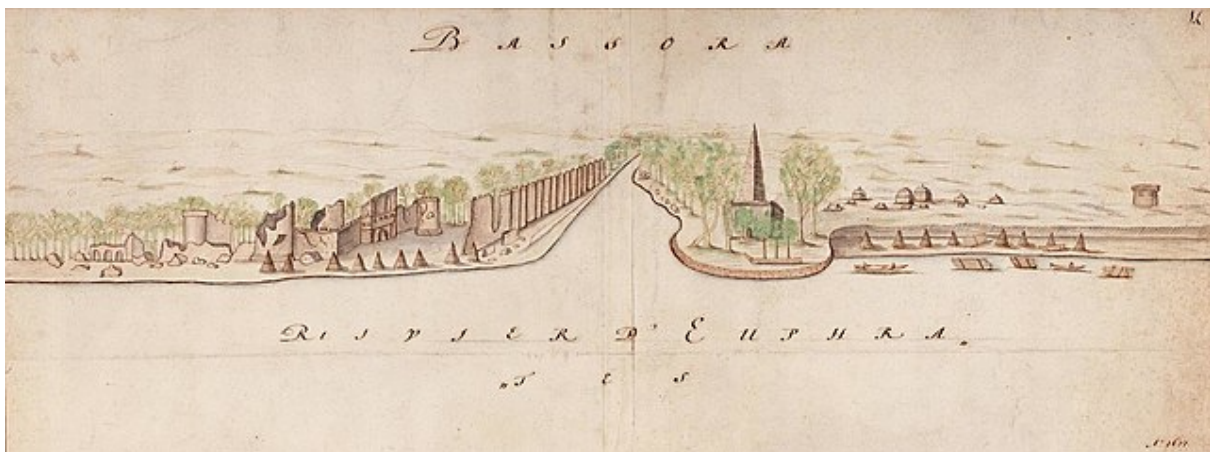 BASSORA
RIJVIER D' EUPHRA„
„TES